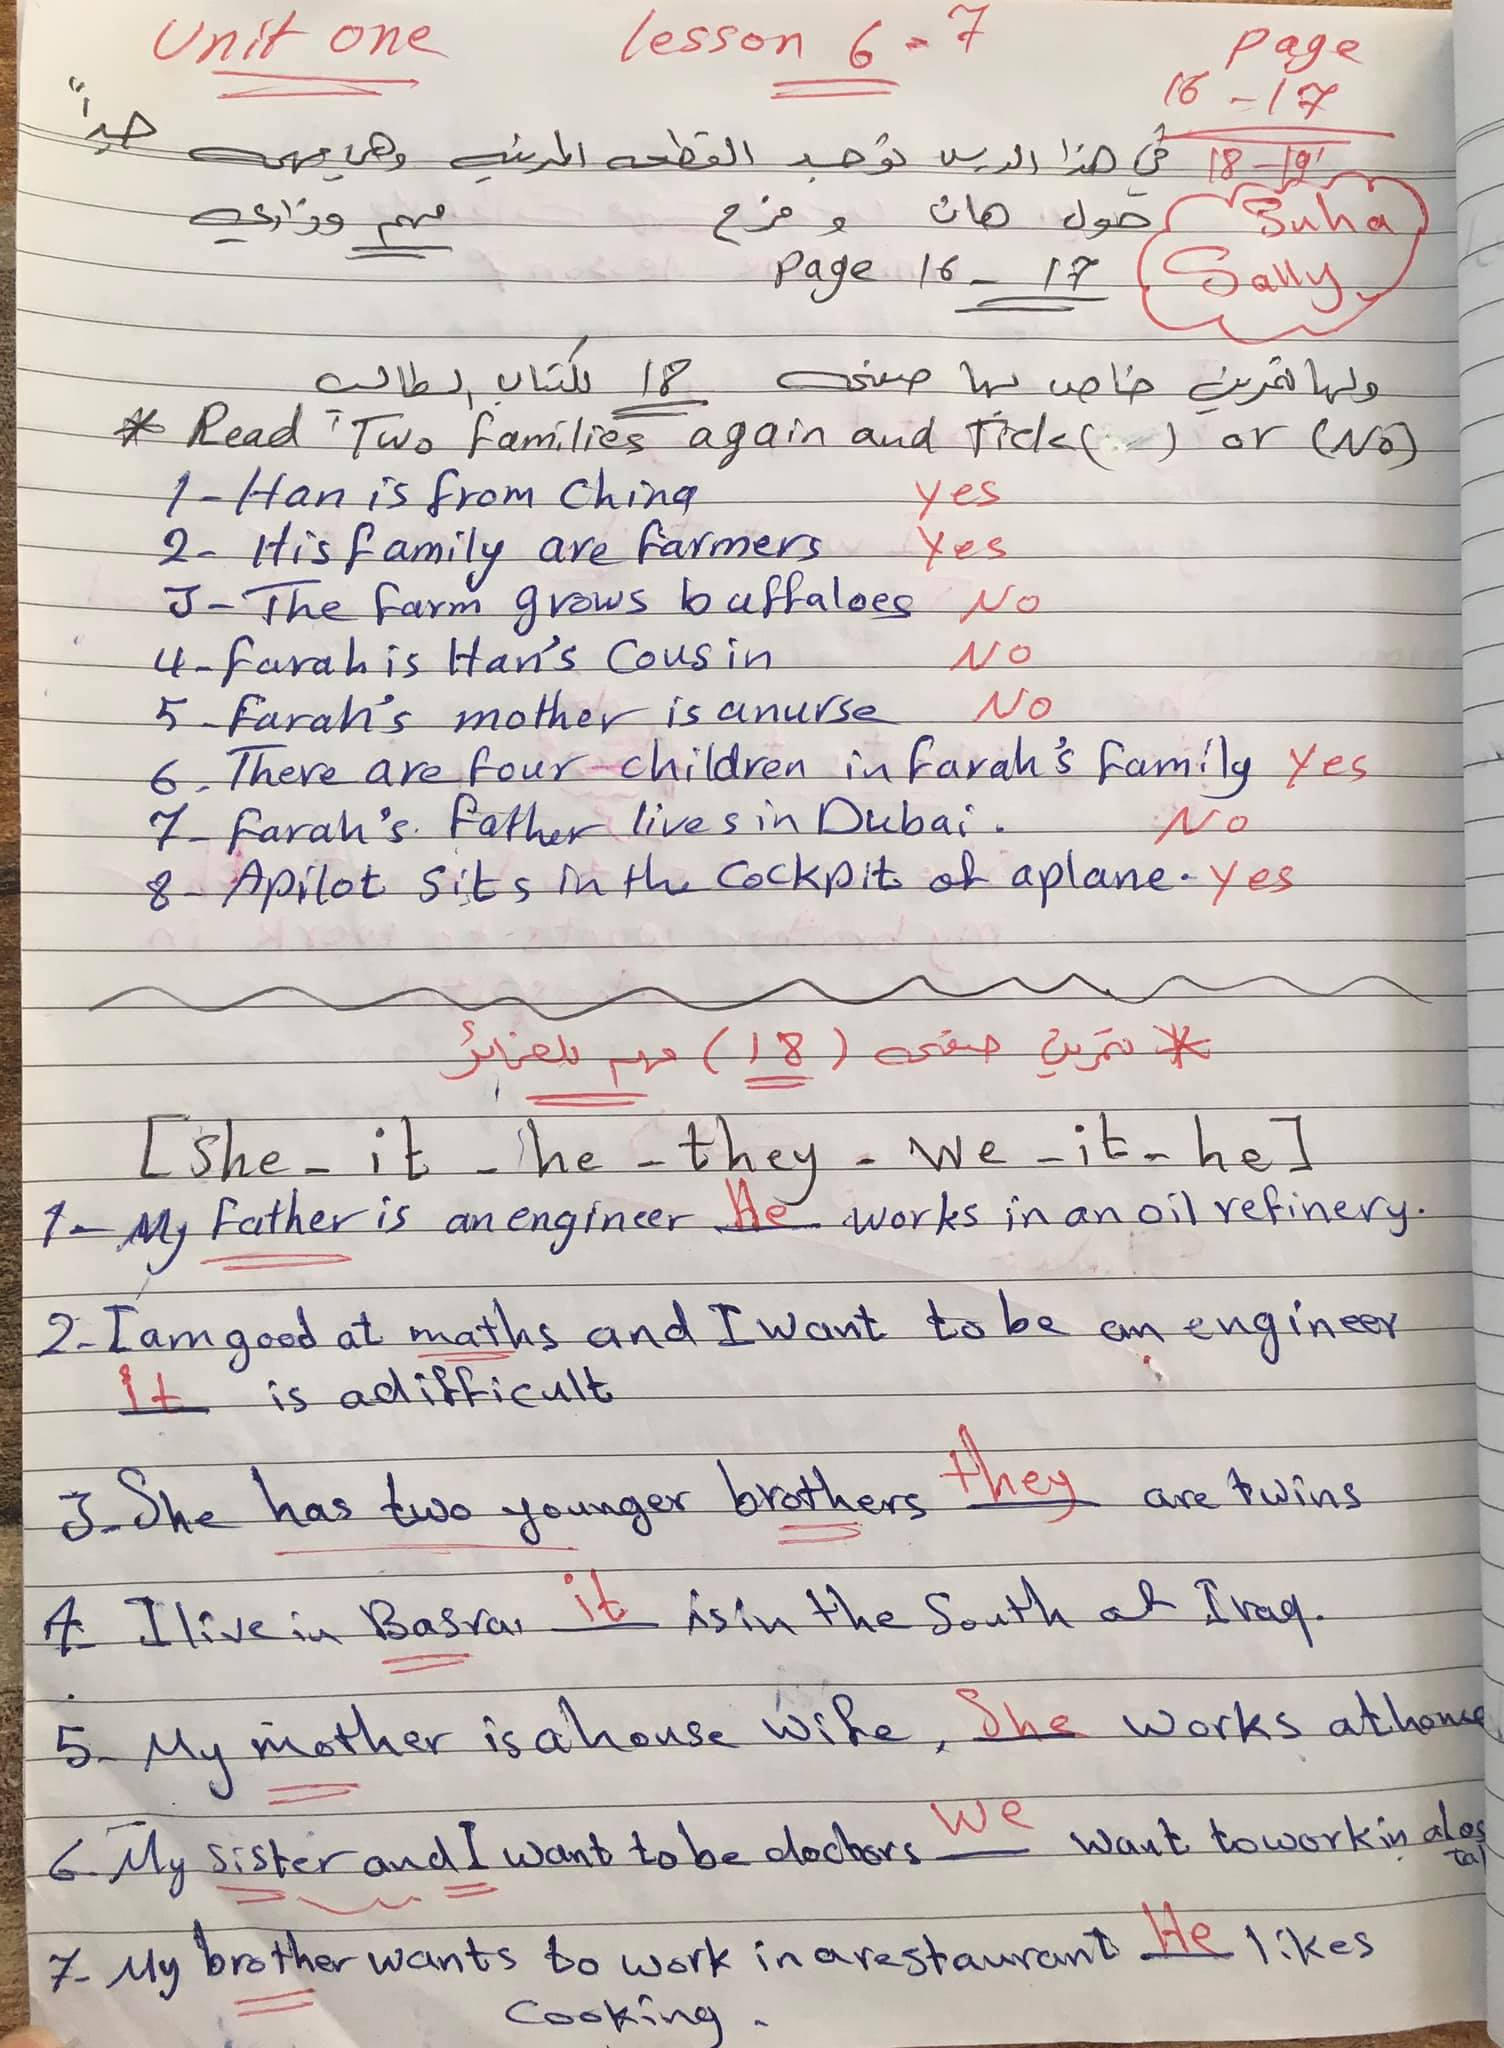 Unit one lesson 6-7 page
16-17
18-19
في هذا الدرس توجد القطعه المدرسيه وهي مهمه جداً
حول هان و فرح مهم وزاري
Suha
Sally
Page 16-17
ولها تمرين خاص بها صفحه 18 لكتاب الطالب
* Read "Two families again and Tick ( ) or (No)
1- Han is from China yes
2- His family are farmers Yes
3- The farm grows buffaloes No
4- Farah is Han's Cousin No
5- Farah's mother is anurse No
6. There are four children in farah's family Yes
7- Farah's father lives in Dubai. No
8- Apilot sits in the cockpit of aplane. yes
* تمرين صفحه (18) مهم للضمائر
[She - it - he - they - we - it - he]
1- My Father is an engineer He works in an oil refinery.
2- I am good at maths and I want to be an engineer
it is adifficult
3- She has two younger brothers they are twins
4- I live in Basra, it is in the South of Iraq.
5- My mother is ahouse wife, She works at home
6- My sister and I want to be doctors we want to work in
7- My brother wants to work in arestaurant He likes
Cooking.